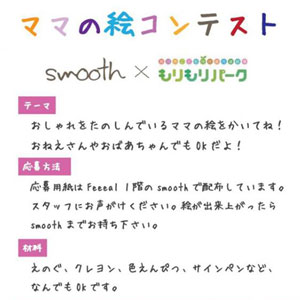 ママの絵コンテスト
smooth × もりもりパーク
テーマ
おしゃれをたのしんでいるママの絵をかいてね！
おねえさんやおばあちゃんでもOKだよ！
応募方法
応募用紙はFeeeal 1階のsmoothで配布しています。
スタッフにお声がけください。絵が出来上がったら
smoothまでお持ち下さい。
材料
えのぐ、クレヨン、色えんぴつ、サインペンなど、
なんでもOKです。